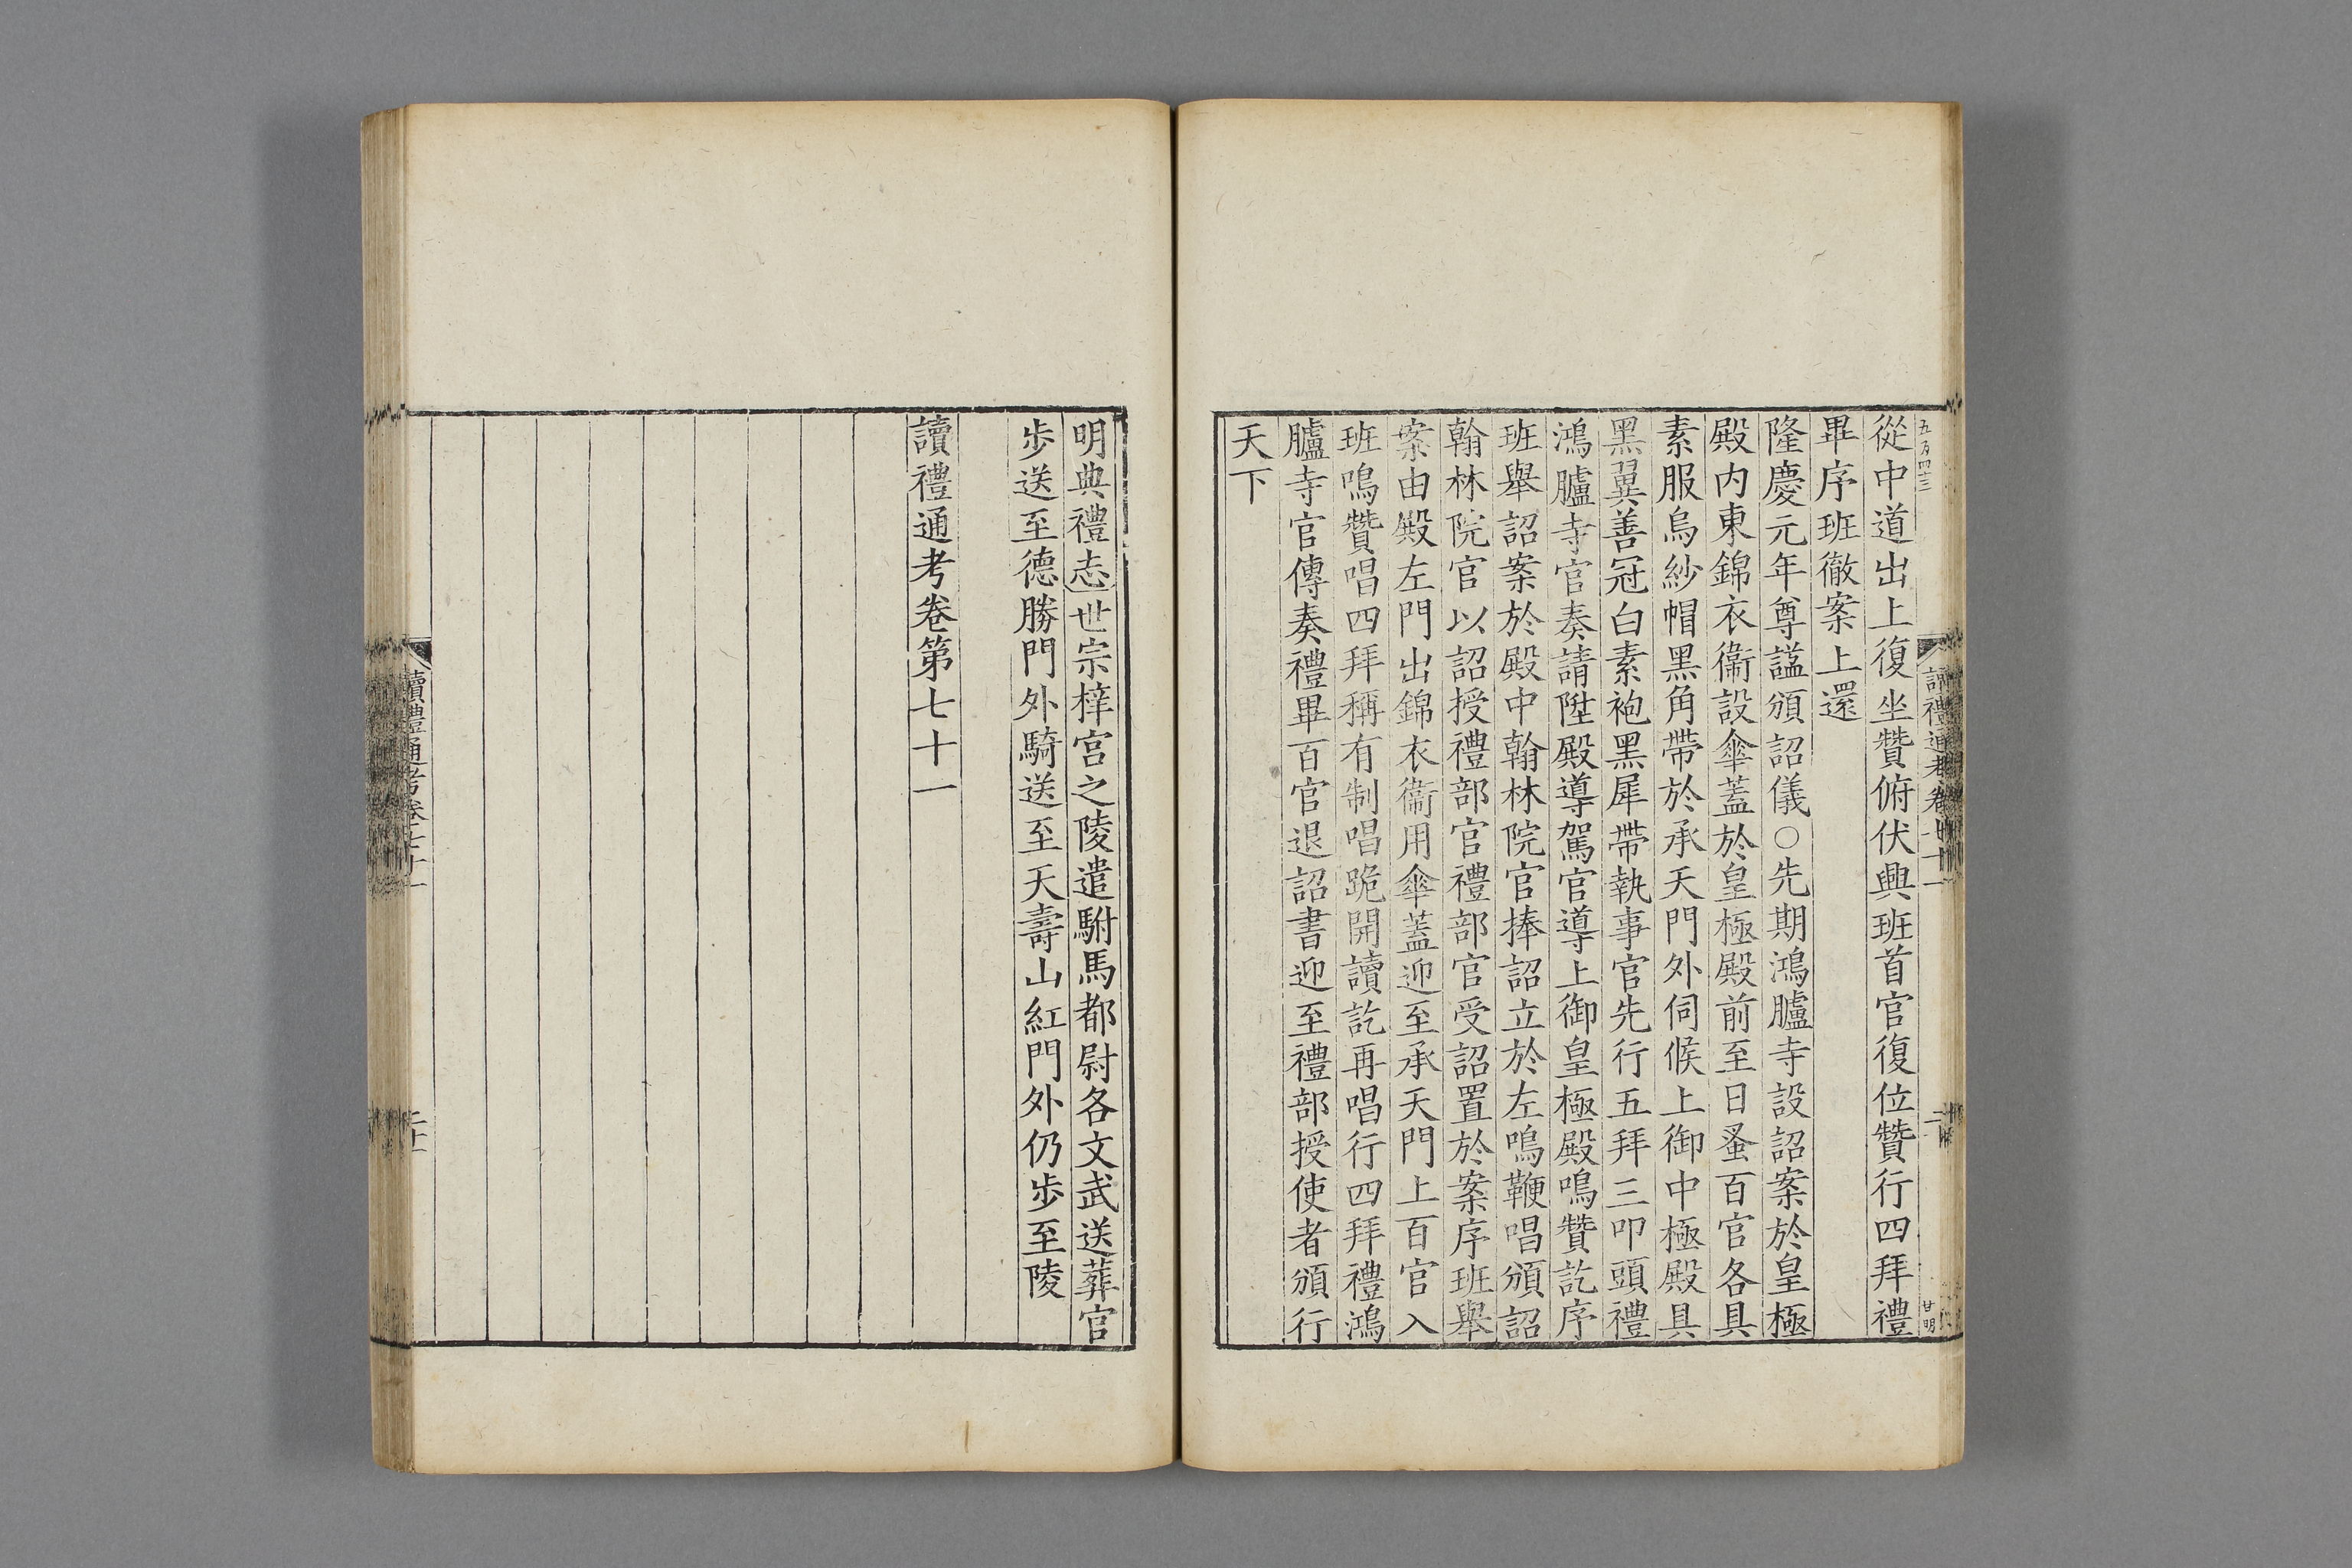 五百四十三
讀禮通考卷七十一
甘明
從中道出上復坐贊俯伏興班首官復位贊行四拜禮
畢序班徹案上還
隆慶元年尊謚頒詔儀○先期鴻臚寺設詔案於皇極
殿内東錦衣衞設傘蓋於皇極殿前至日蚤百官各具
素服烏紗帽黑角帶於承天門外伺候上御中極殿具
黑翼善冠白素袍黑犀帶執事官先行五拜三叩頭禮
鴻臚寺官奏請陞殿導駕官導上御皇極殿鳴贊訖序
班舉詔案於殿中翰林院官捧詔立於左鳴鞭唱頒詔
翰林院官以詔授禮部官禮部官受詔置於案序班舉
案由殿左門出錦衣衞用傘蓋迎至承天門上百官入
班鳴贊唱四拜稱有制唱跪開讀訖再唱行四拜禮鴻
臚寺官傳奏禮畢百官退詔書迎至禮部授使者頒行
天下
明典禮志世宗梓宮之陵遣駙馬都尉各文武送葬官
步送至德勝門外騎送至天壽山紅門外仍步至陵
讀禮通考卷第七十一
讀禮通考卷七十一